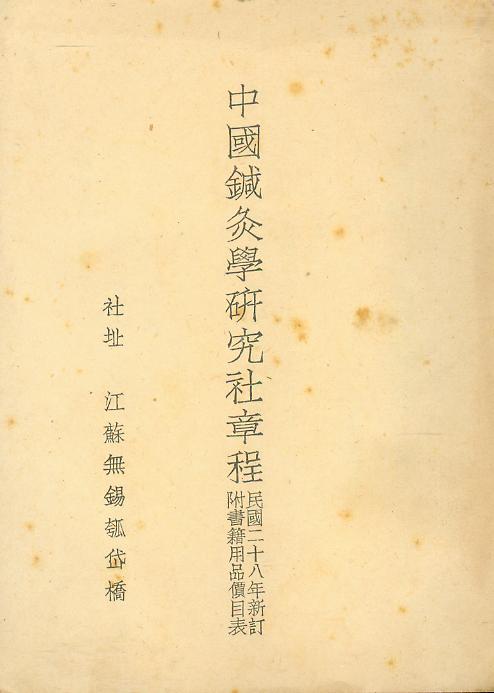 中國鍼灸學硏究社章程
民國二十八年新訂
附書籍用品價目表
社址 江蘇無錫瓠岱橋